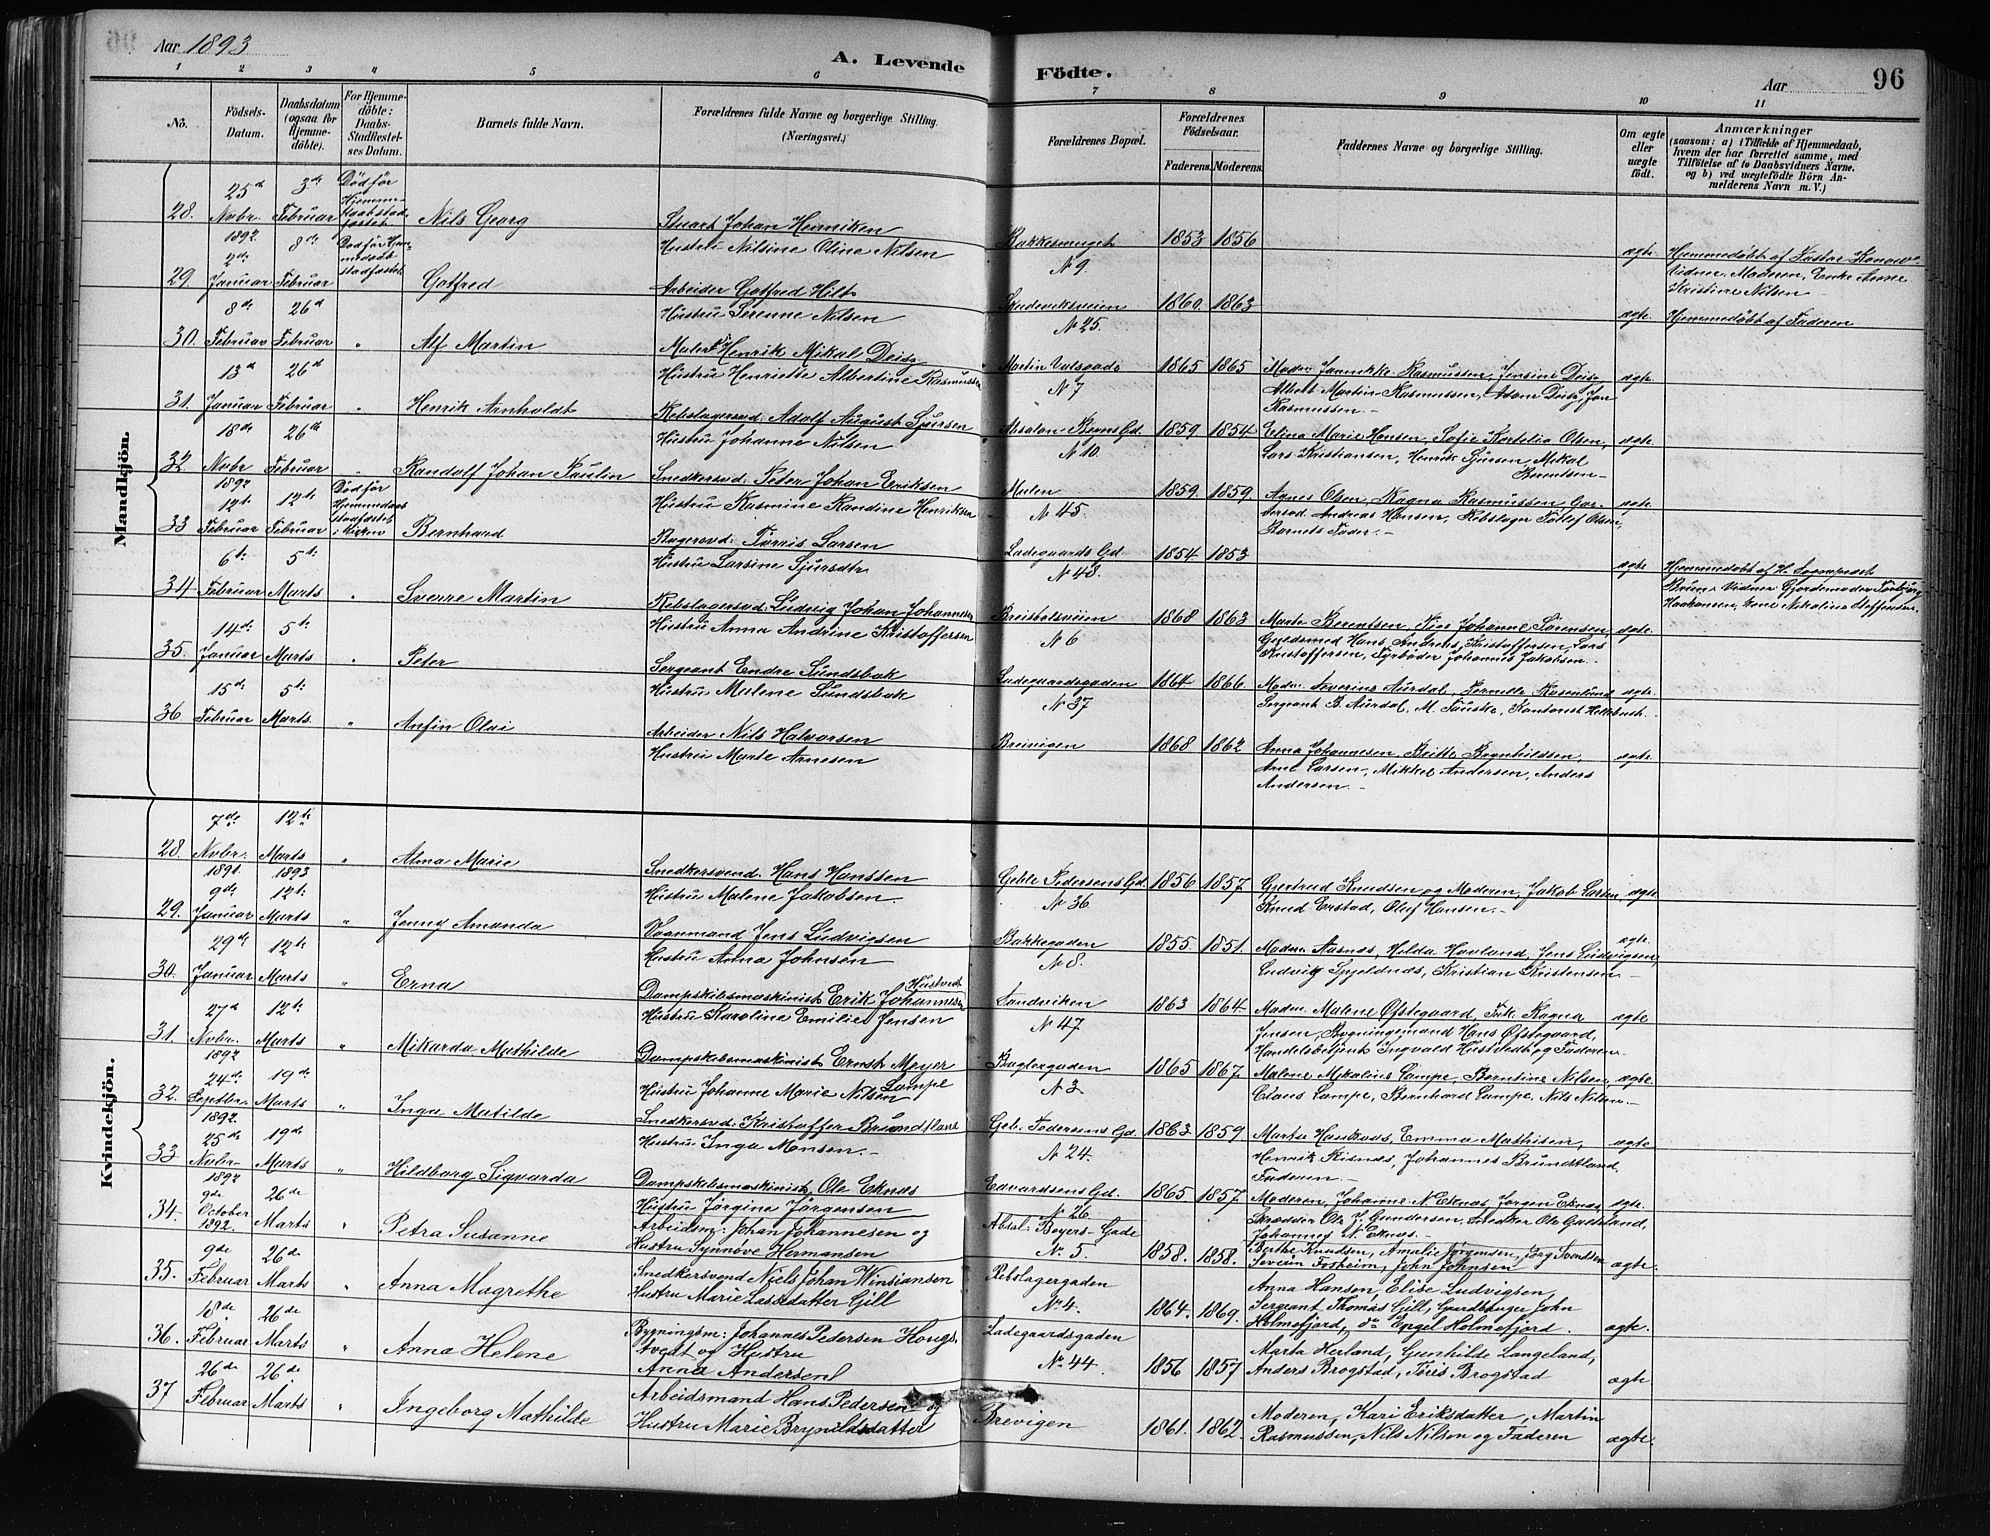 Aar 1893
A. Levende Födte.
Aar
96
1 2 3 4 5 6 7 8 9 10 11
No.
Födsels-Datum.
Daabsdatum (ogsaa for Hjemme-döbte).
For Hjemme-döbte: Daabs-Stadfæstel-ses Datum.
Barnets fulde Navn.
Forældrenes fulde Navne og borgerlige Stilling. (Næringsvei.)
Forældrenes Bopæl.
Forældrenes Födselsaar.
Faderens. Moderens.
Faddernes Navne og borgerlige Stilling.
Om ægte eller uægte födt.
Anmærkninger
(saasom: a) i Tilfælde af Hjemmedaab, hvem der har forrettet samme, med Tilföielse af to Daabsvidners Navne. og b) ved uægtefödte Börn An-melderens Navn m. V.)
Mandkjön.
28. 25de Novbr. 1892 3die Februar Död för Hjemme- Nils Georg
Stuart Johan Henriken
Hustru Nilsine Oline Nilsen
No 9 1853 1856 ægte
Hjemmedöbt af Pastor
Vidner: Moderen, Enke Anne
Kristine Nilsen
29. 2den Januar 8de Februar Död för Hjem-medaab stadfæstet Gotfred
Arbeider Gotfred Hilt
Hustru Serenne Nilsen
No 25. 1860. 1863 ægte.
Hjemmedöbt af Faderen
30. 8de Februar 26de Februar " Alf Martin
Maler Henrik Mikal
Hustru Henriette Albertine Rasmussen
No 7 1865 1865
Rasmussen, Jensine
Albert Martin Rasmussen, Adam
Rasmussen. ægte.
31. 13de Januar 26de Februar " Henrik Arnholdt
Rebslagersvd. Adolf August Sjursen
Hustru Johanne Nilsen
Absalon Beyers Gd.
No 10. 1859. 1854
Elina Marie Hansen, Sofie Kornelia Olsen,
Lars Kristiansen, Henrik Sjursen, Mikal
Berentsen ægte.
32 18de Novbr 1892 26de Februar " Randolf Johan Paulin
Snedkersvd. Peter Johan Eriksen
Hustru Rasmine Randine Henriksen
Mulen
No 45 1859. 1859
Agnes Olsen, Ragna Rasmussen,
Andreas Hansen, Rebslager Olsen,
Barnets Fader. ægte.
33 12te Februar 12te Februar Död för Hjemmedaabs stadfæstet i Kirken Bernhard
Bagersvd. Larsen
Hustru Larsine Sjursdtr
Ladegaards Gd.
No 43. 1854 1853 ægte
34 6te Februar 5te Marts " Sverre Martin
Rebslagersvd. Ludvig Johan Johannesen
Hustru Anna Andrine Kristoffersen
No 6 1868 1863
Marta Berentsen, Johanne Sörensen,
Guldsmed Hans Andreas Kristoffersen, Lars
Kristoffersen, Fyrböder Johannes Jakobsen. ægte.
35. 14de Januar 5te Marts " Peter
Sergeant Endre Sundsbak
Hustru Malene Sundsbak
Ladegaardsgaden
No 37 1864 1866
Severine Aurdal, Pernille Rosenlund
Sergeant B. Aurdal. ægte
36. 15de Februar 5te Marts. " Anfin Olai
Arbeider Nils Halvorsen
Hustru Marte Arnesen
Breivigen 1868 1862
Anna Johannesen, Britte Brynhildsen,
Larsen, Mikkel Andersen, Anders
Andersen. ægte
Kvindekjön.
28. 7de Novbr. 1891. 12te Marts 1893 " Alma Marie
Snedkersvend. Hans Hanssen
Hustru Malene Jakobsen.
Geble Pedersens Gd.
No 36. 1856 1857
Gjertrud Knudsen og Moderen, Jakob Larsen
Knud Erstad, Oluf Hansen. ægte
29. 9de Januar 12te Marts " Jenny Amanda
Vognmand Jens Ludvigsen
Hustru Anna Johnsen
Bakkegaden
No 8. 1855. 1851.
Aasnæs, Hilda Hovland, Jens Ludvigsen,
Ludvig, Kristian Kristensen. ægte.
30. 29de Januar 12te Marts " Erna
Dampskibsmaskinist Erik Johannesen Hustvedt
Hustru Karoline Emilie Jensen
Sandviken
No 47 1863 1864
Malene Öfstegaard, Frk. Ragna
Jensen, Bygningsmand Hans Öfstegaard,
Handelsbetjent Ingvald Hustvedt og Faderen. ægte
31. 27de Novbr. 1892 12te Marts " Mikarda Mathilde
Dampskibsmaskinist Ernst Meyer Lampe
Hustru Johanne Marie Nilsen
Baglergaden
No 3. 1865 1867.
Malene Mikaline Lampe, Berntine Nilsen,
Claus Lampe, Bernhard Lampe, Nils Nilsen. ægte.
32. 24de Septbr. 1892. 19de Marts " Inga Matilde
Snedkersvd. Kristoffer Brundtland
Hustru Inga Monsen.
Geb. Pedersens Gd.
No 24. 1863 1859
Marta, Emma Mathisen,
Henrik Risnæs, Johannes Brundtland,
Faderen. ægte
33 25de Novbr. 1892 19de Marts " Hildborg Sigvarda
Dampskibsmaskinist Ole Eknæs
Hustru Jörgina Jörgensen
Edvardsens Gd.
No 26 1865 1857
Moderen, Johanne N. Eknæs, Jörgen Eknæs,
Skrædder Ole J. Gundersen, Snedker Ole,
Johannes N. Eknæs. ægte.
34. 9de October 1892. 26de Marts " Petra Susanne
Arbeidsm: Johan Johannesen og
Hustru Synnöve Hermansen
Absal: Beyers-Gade
No. 5. 1858. 1858.
Berthe Knudsen, Amalie Jörgensen, Svendsen
Severin Fosheim, John Johnsen ægte.
35. 9de Februar 26de Marts " Anna Magrethe
Snedkersvend Niels Johan Winsiansen
Hustru Marie Lassedatter Gjill
Rebslagergaden
No 4. 1864. 1869.
Anna Hansen, Elise Ludvigsen,
Sergeant Thomas Gjill, Gaardbruger John
Holmefjord, do Engel Holmefjord. ægte.
36. 18de Februar 26de Marts " Anna Helene
Bygningsm: Johannes Pedersen Haugs-
tvedt og Hustru
Anna Andersen
Ladegaardsgaden
No. 44. 1856 1857
Marta Herland, Gunhilde Langeland,
Anders Brogstad, Toris Brogstad ægte
37 26de Februar 26de Marts " Ingeborg Mathilde
Arbeidsmand Hans Pedersen og
Hustru Marie Brynildsdatter
Brevigen 1861. 1862
Moderen, Kari Eriksdatter, Martin
Rasmussen, Nils Nilsen og Faderen ægte.